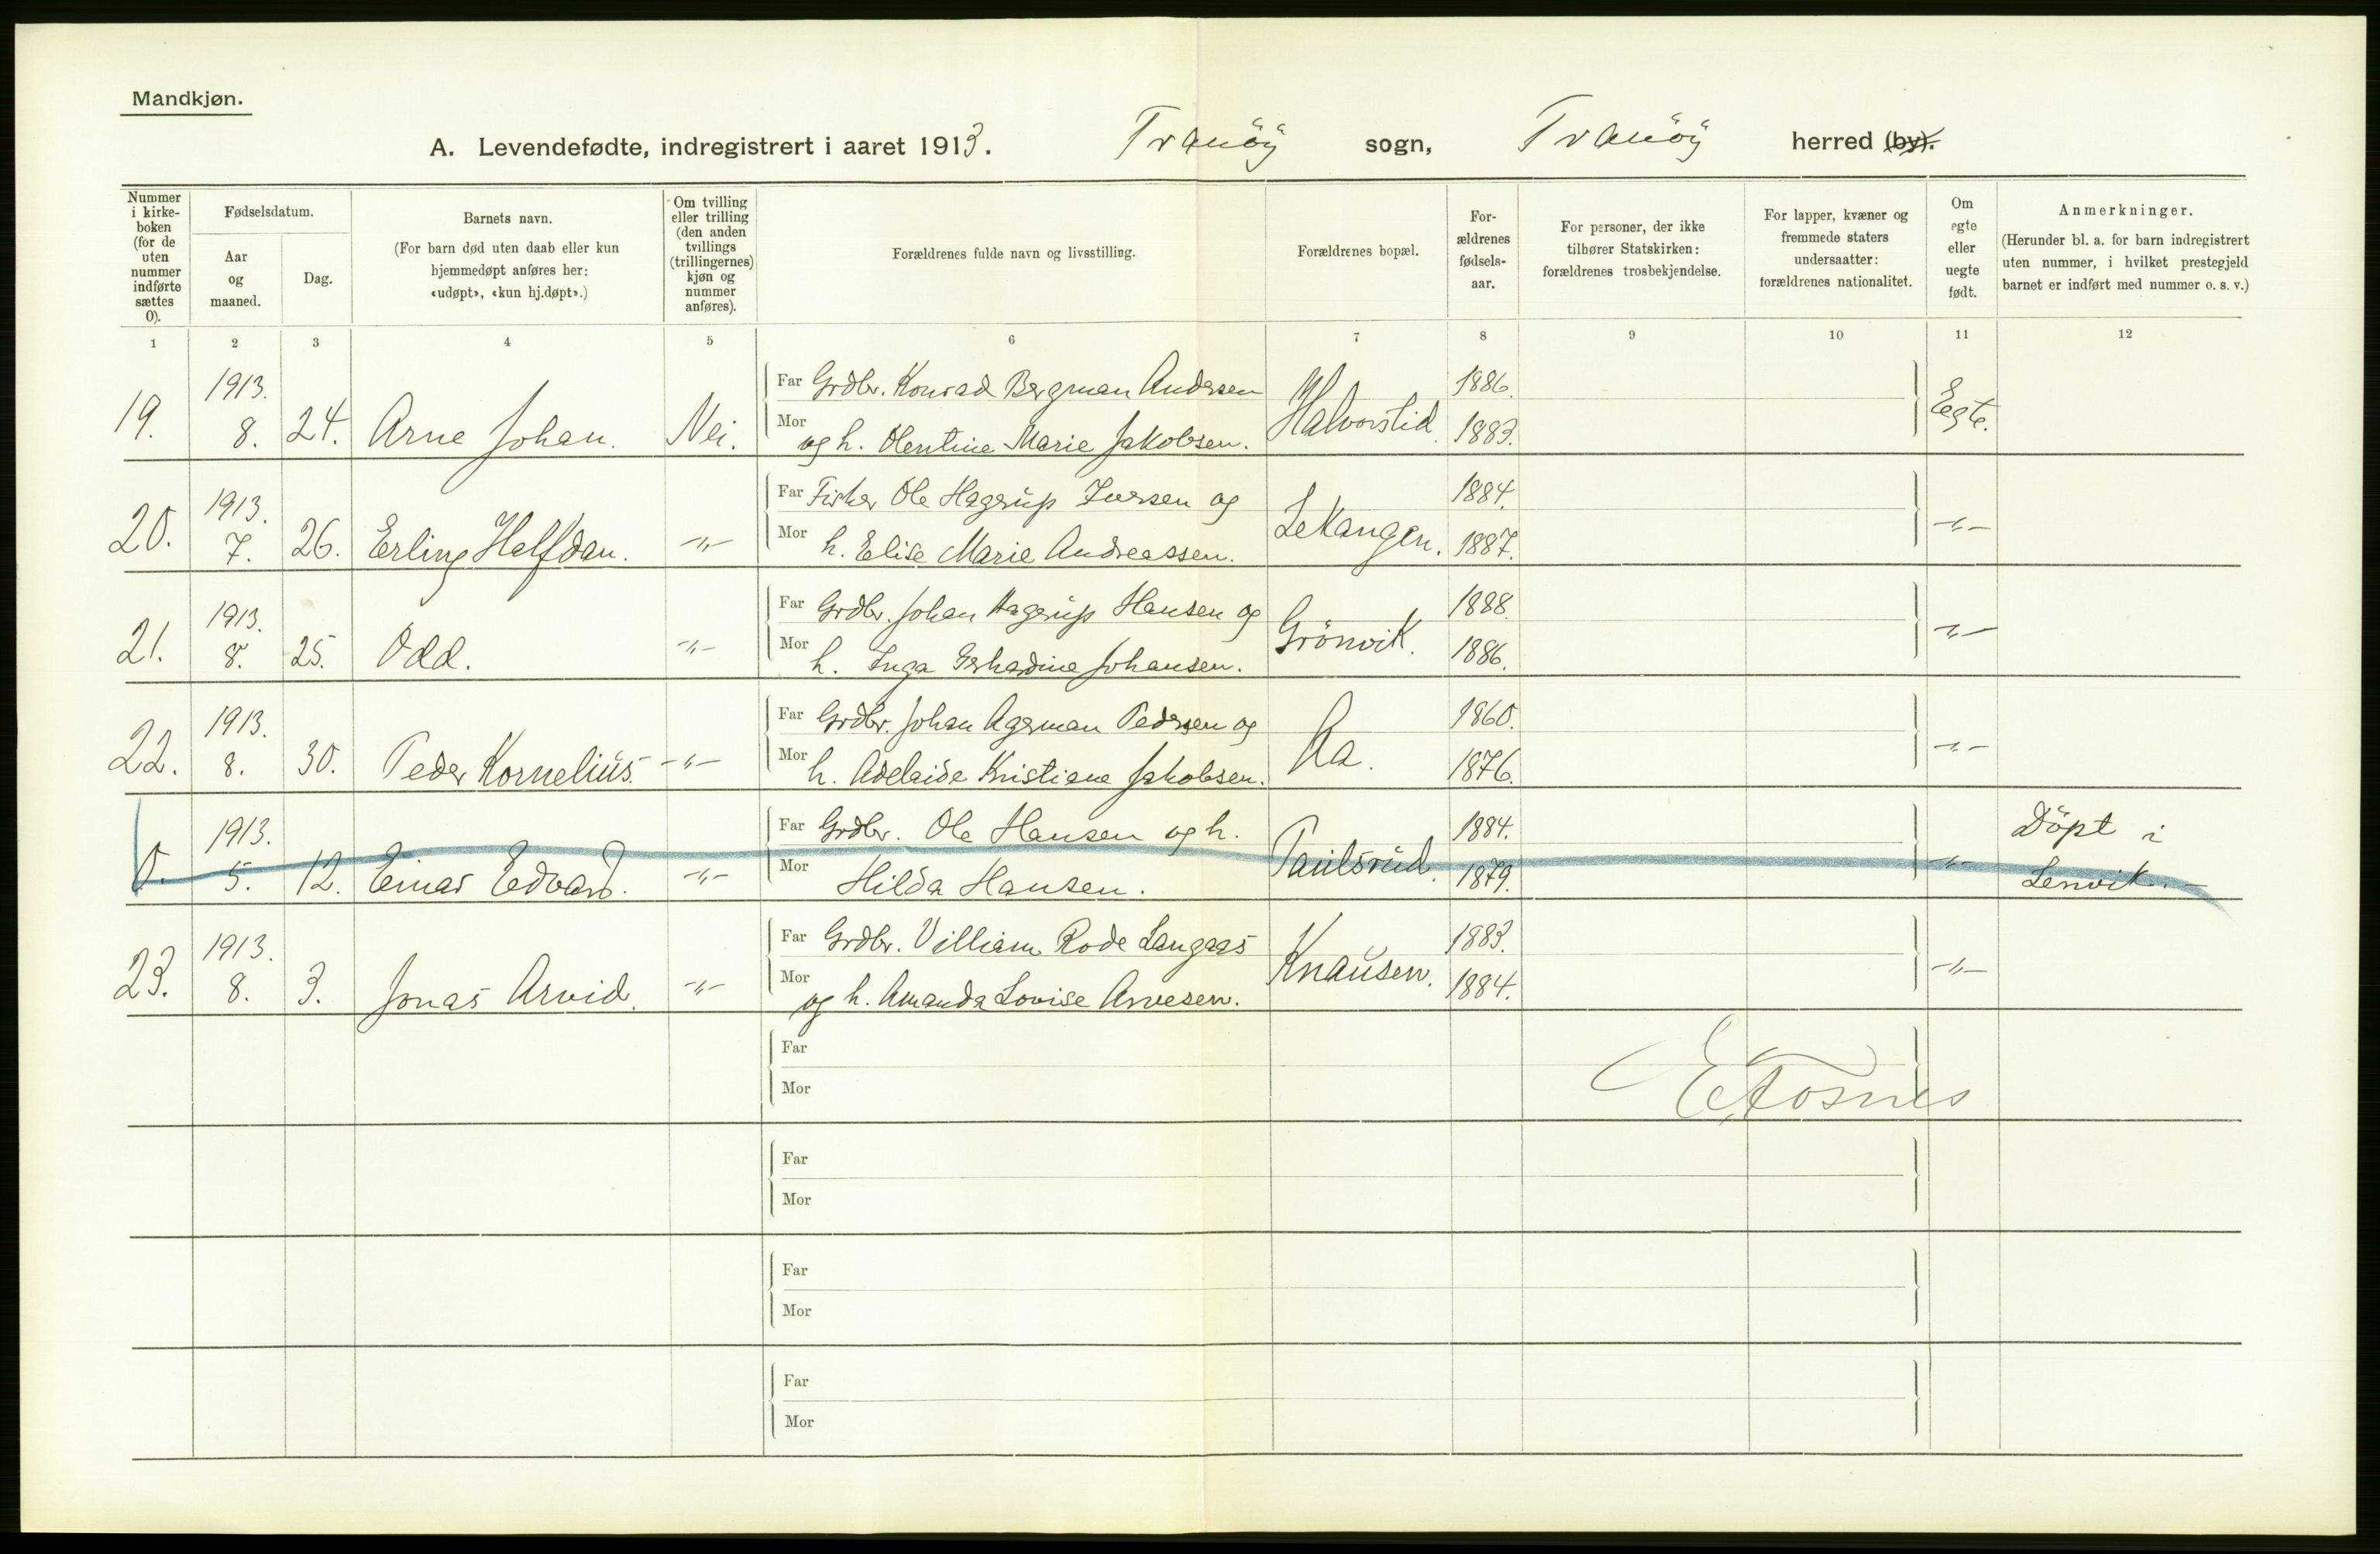 Mandkjøn.
A. Levendefødte, indregistrert i aaret 1913. Tranöÿ sogn, Tranöÿ herred (by).
Nummer i kirke-boken (for de uten nummer indførte sættes 0).
Fødselsdatum.
Aar og maaned.
Dag.
Barnets navn.
(For barn død uten daab eller kun hjemmedøpt anføres her: «udøpt», «kun hj.døpt».)
Om tvilling eller trilling (den anden tvillings (trillingernes) kjøn og nummer anføres).
Forældrenes fulde navn og livsstilling.
Forældrenes bopæl.
For-ældrenes fødsels-aar.
For personer, der ikke tilhører Statskirken: forældrenes trosbekjendelse.
For lapper, kvæner og fremmede staters undersaatter: forældrenes nationalitet.
Om egte eller uegte født.
Anmerkninger.
(Herunder bl. a. for barn indregistrert uten nummer, i hvilket prestegjeld barnet er indført med nummer o. s. v.)
1 2 3 4 5 6 7 8 9 10 11 12
19. 1913. 8. 24. Arne Johan. Nei.
Far Grdbr. Konrad Bergman Andersen
Mor og h. Olentine Marie Jakobsen.
Halvorslid. 1886. 1883. Egte.
20. 1913. 7. 26. Erling Halfdan. -"-
Far Fisker Ole Hagerup Iversen og
Mor h. Elise Marie Andreassen.
Lekangen. 1884. 1887. -"-
21. 1913. 8. 25. Odd. -"-
Far Grdbr. Johan Hagerup Hansen og
Mor h. Inga Gerhardine Johansen.
Grönvik. 1888. 1886. -"-
22. 1913. 8. 30. Peder Kornelius. -"-
Far Grdbr. Johan Agerman Pedersen og
Mor h. Adelaide Kristiane Jakobsen.
Aa. 1860. 1876. -"-
0. 1913. 5. 12. Einar Edvard. -"-
Far Grdbr. Ole Hansen og h.
Mor Hilda Hansen.
Paulsrud. 1884. 1879. -"- Döpt i Lenvik.-
23. 1913. 8. 3. Jonas Arvid. -"-
Far Grdbr. Villiam Rode Langaas
Mor og h. Amanda Lovise Arvesen.
Knausen. 1883. 1884. -"-
Far
Mor
E. Fosnes
Far
Mor
Far
Mor
Far
Mor